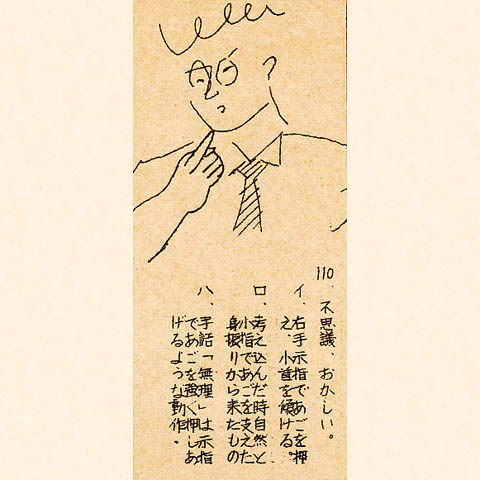 110、不思議、おかしい。
イ、右手示指であごを押
え、小首を傾ける。
ロ、考え込んだ時自然と
小指であごを支えた
身振りから来たもの
ハ、手話「無理」は示指
であごを強く押しあ
げるような動作。